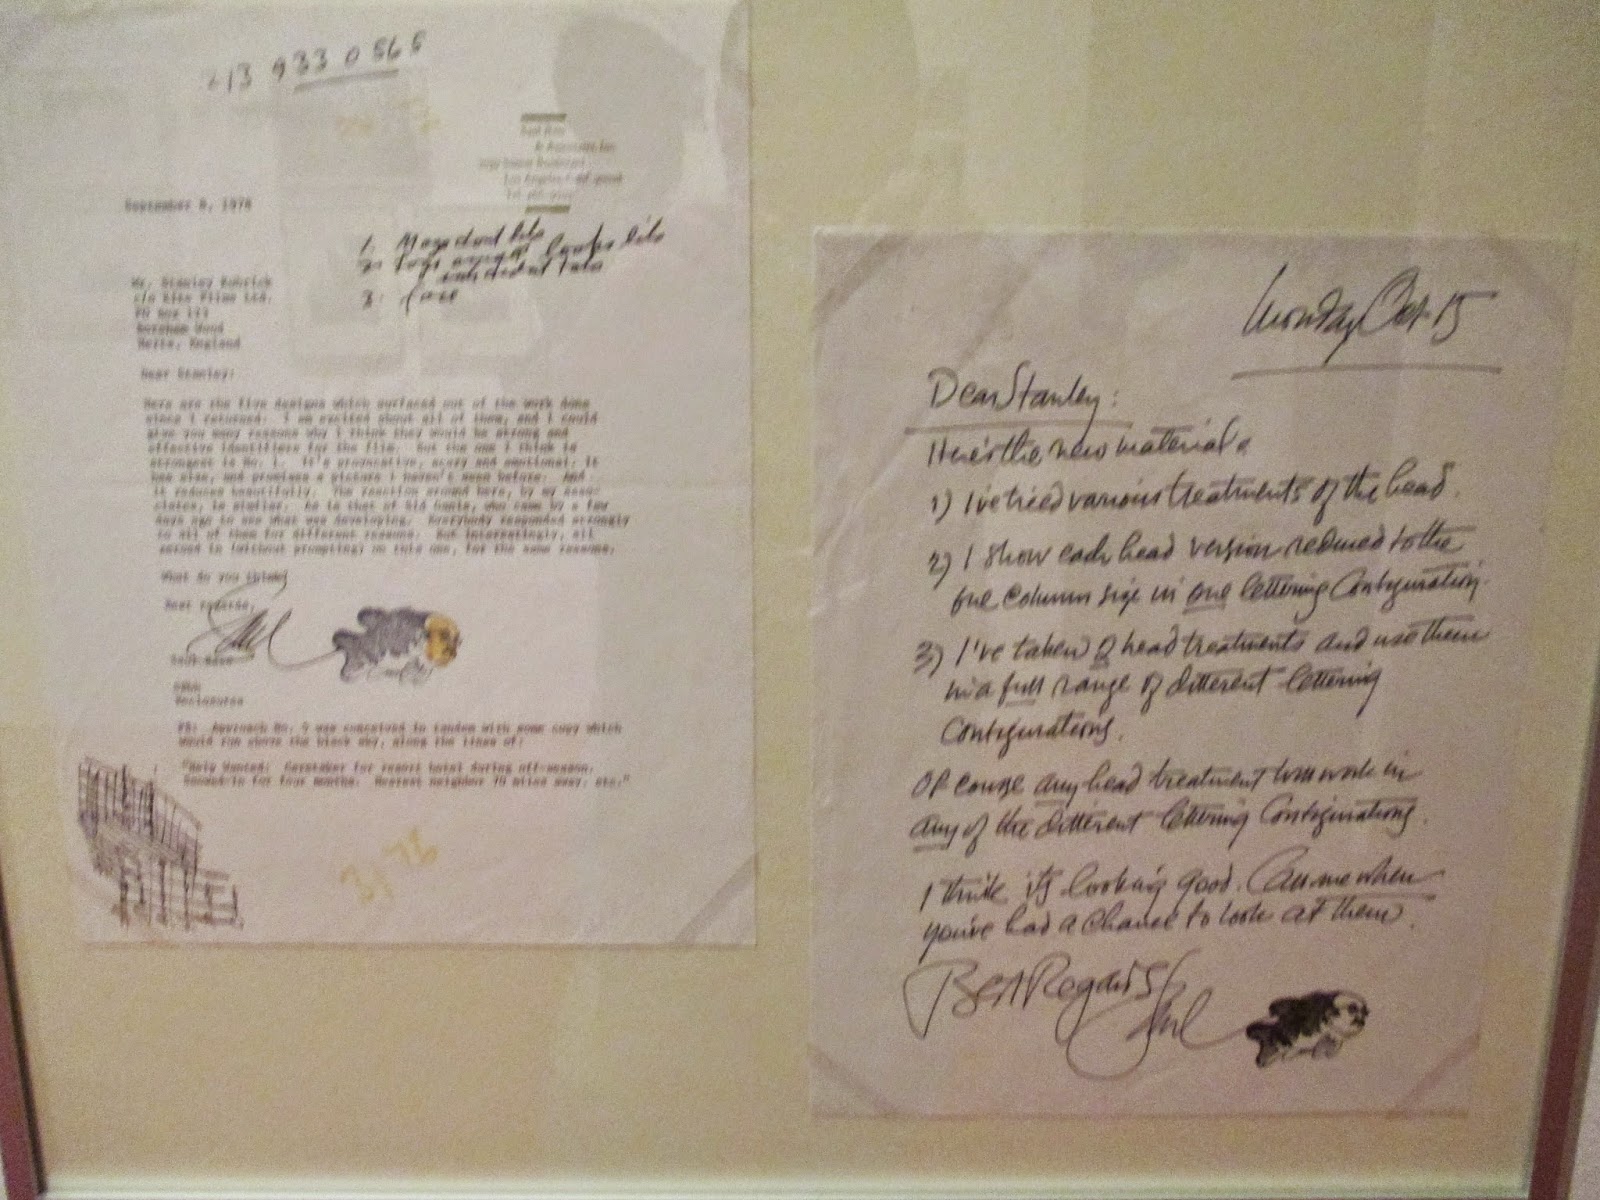 213 933 0565
September 8, 1978
1.
2. looks like
3.
Mr. Stanley Kubrick
c/o Films Ltd.
PO Box 111
Boreham Wood
Herts, England
Dear Stanley:
Here are the five designs which surfaced out of the work done
since I returned. I am excited about all of them, and I could
give you many reasons why I think they would be strong and
effective identifiers for the film. But the one I think is
strongest is No. 1. It's provocative, scary and emotional. It
has size, and promises a picture I haven't seen before. And
it reduces beautifully. The reaction around here, by my asso-
ciates, is similar. As is that of who came by a few
days ago to see what was developing. Everybody responded strongly
to all of them for different reasons. But interestingly, all
zeroed in (without prompting) on this one, for the same reasons.
What do you think?
Best regards,
Saul
Saul Bass
Enclosures
PS: Approach No. 5 was conceived in tandem with some copy which
would run above the black sky, along the lines of:
"Help Wanted: Caretaker for resort hotel during off-season.
Snowed-in for four months. Nearest neighbor miles away. etc."
Monday Oct. 15
Dear Stanley:
Here's the new material.
1) I've tried various treatments of the head.
2) I show each head version reduced to the
one column size in one lettering configuration.
3) I've taken 2 head treatments and use them
in a full range of different lettering
configurations.
Of course any head treatment will work in
any of the different lettering configurations.
I think it's looking good. Call me when
you've had a chance to look at them.
Best Regards,
Saul